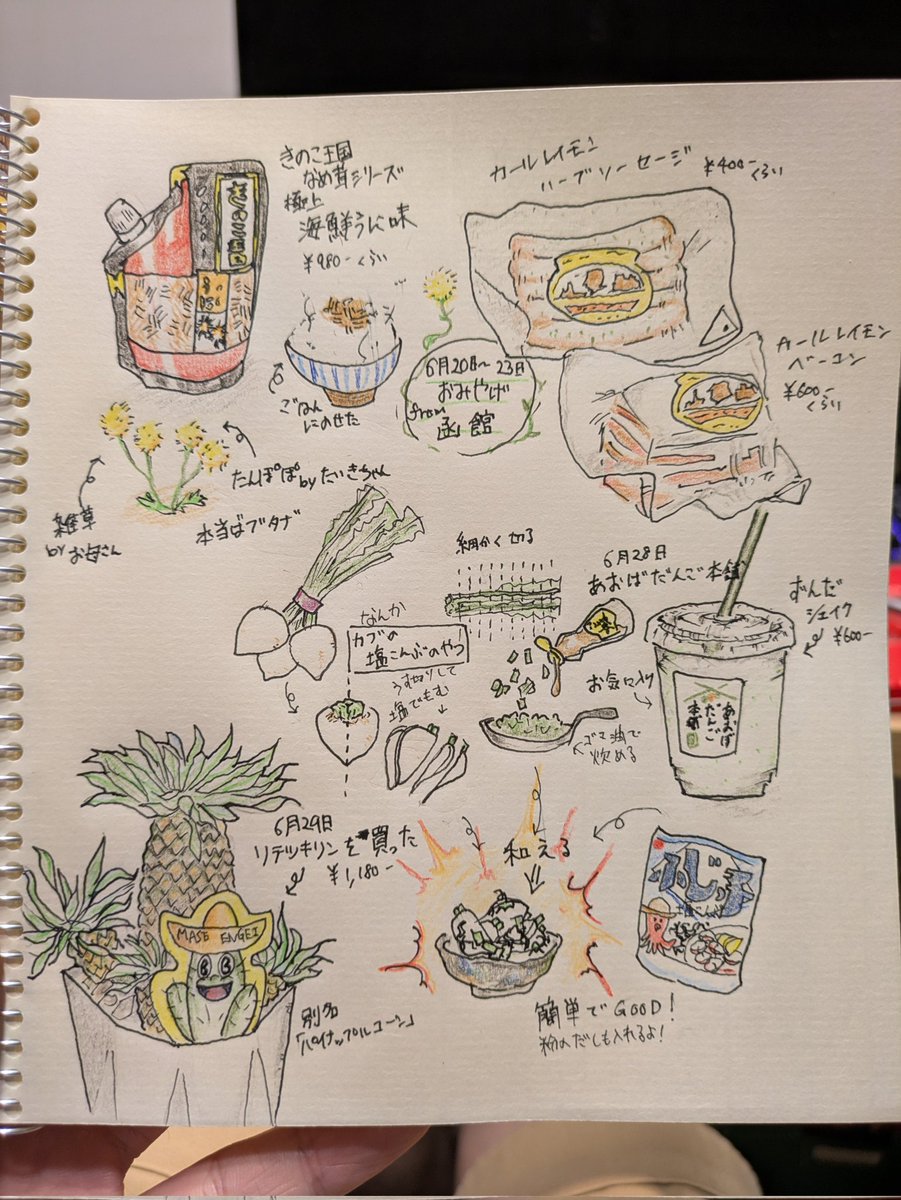 きのこ王国
なめ茸シリーズ
極上
海鮮うに味
¥980-くらい
カールレイモン
ハーブソーセージ
¥400-くらい
カールレイモン
ベーコン
¥600-くらい
6月20日~23日
おみやげ
from
函館
ごはん
にのせた
たんぽぽ by たいきちゃん
雑草
by お母さん
本当はブタナ
細かく切る
6月28日
あおばだんご本舗
ずんだ
シェイク
¥600-
お気に入り
あおば
だんご
本舗
なんか
カブの
塩こんぶのやつ
うす切りして
塩でもむ
ゴマ油で
炒める
6月29日
リテツキリンを買った
¥1,180-
MASE ENGEI
別名
「パイナップルコーン」
和える
ふじっ子
簡単でGOOD!
粉のだしも入れるよ!